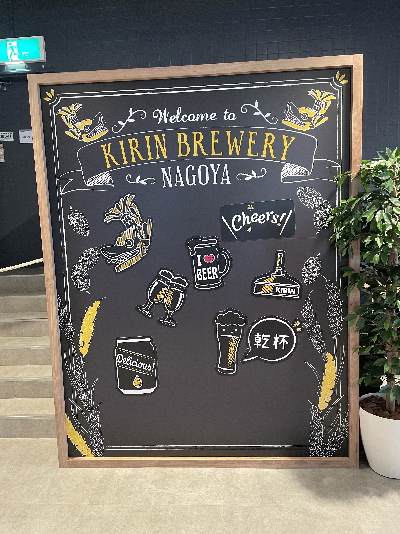 Welcome to
KIRIN BREWERY
NAGOYA
Cheers!
I
BEER
KIRIN
乾杯
Delicious!